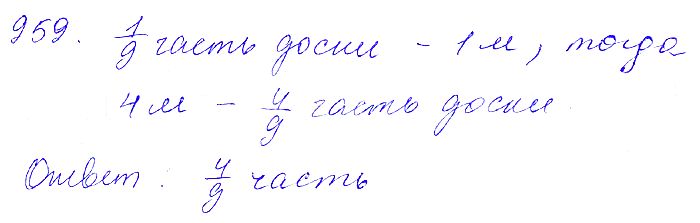 959. 1/9 часть доски – 1 м, тогда
4 м – 4/9 часть доски.
Ответ: 4/9 часть